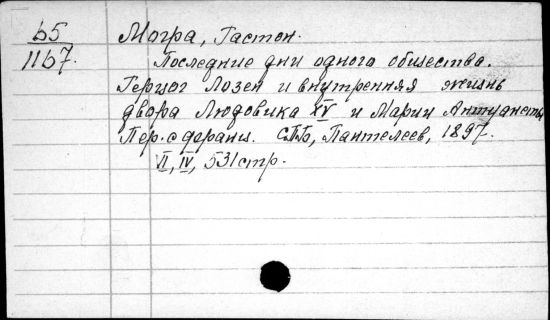 65
1167.
Могра, Гастон.
Последние дни одного общества.
Герцог Лозен и внутренняя жизнь
двора Людовика XV и Марии Антуанеты
Пер. с франц. СПб, Пантелеев, 1897.
VI, IV, 531 стр.